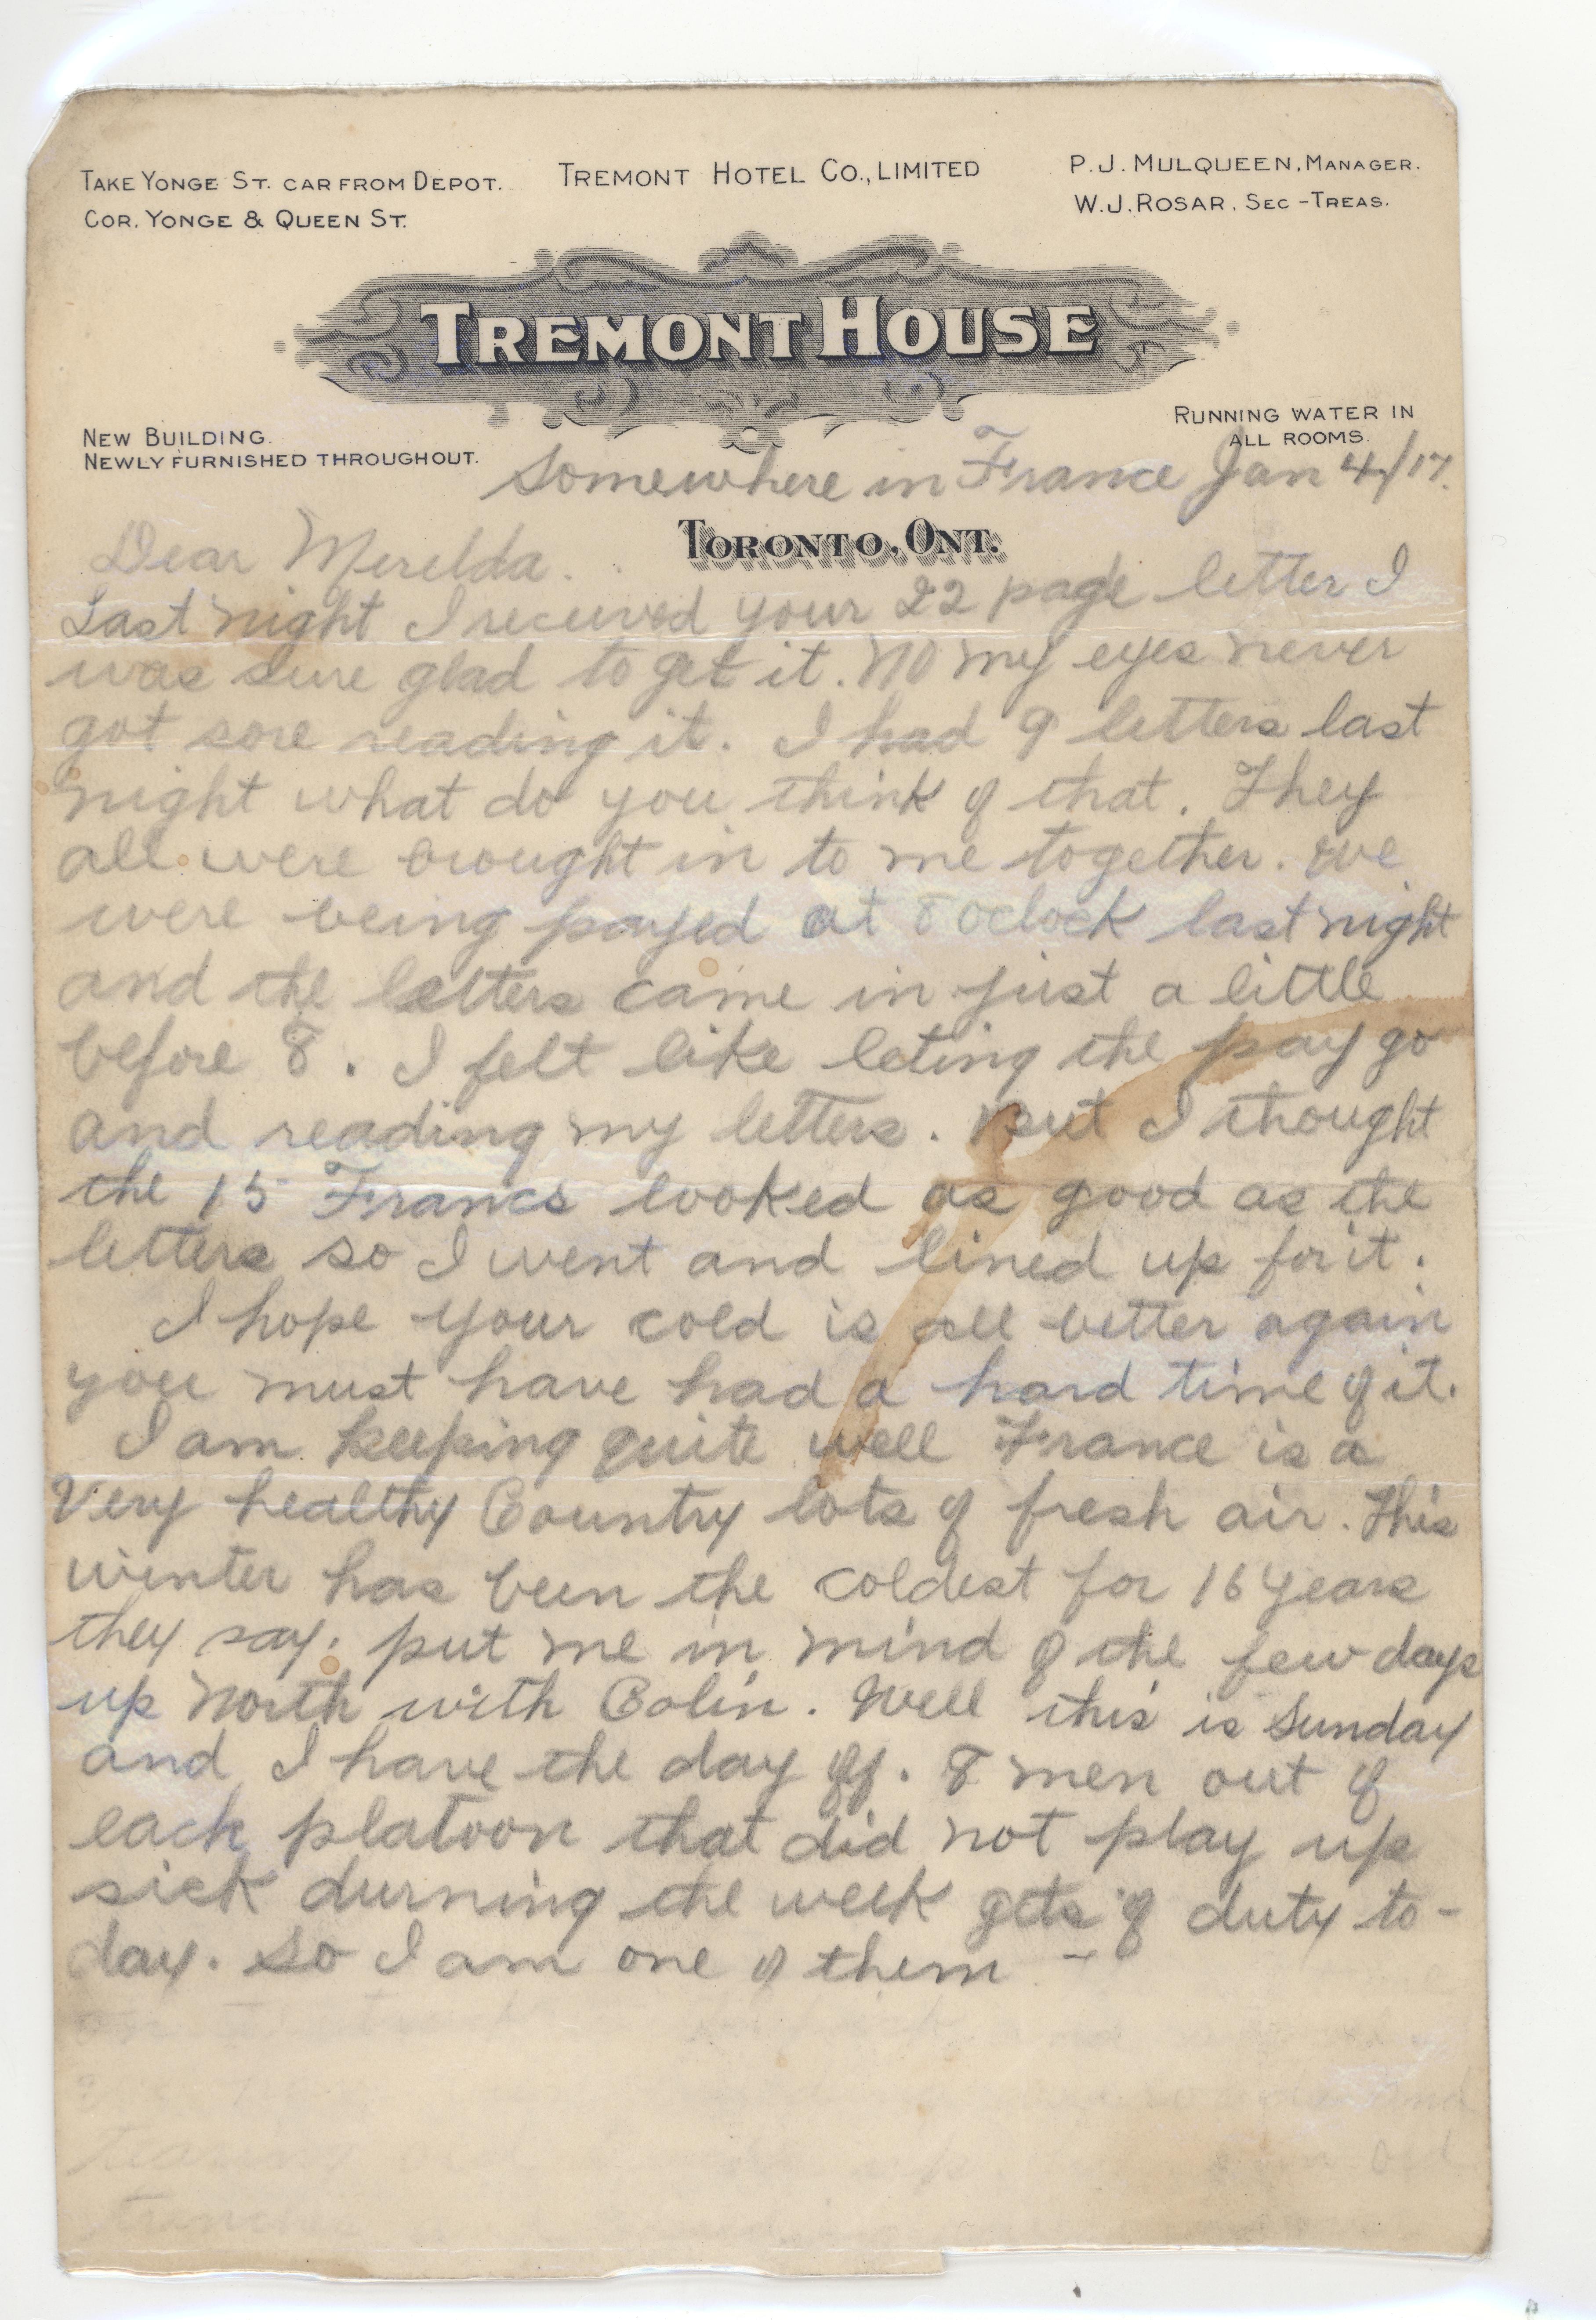 TAKE YONGE ST. CAR FROM DEPOT.
COR. YONGE & QUEEN ST.
TREMONT HOTEL CO., LIMITED
P.J. MULQUEEN, MANAGER.
W.J. ROSAR. SEC-TREAS.
TREMONT HOUSE
NEW BUILDING.
NEWLY FURNISHED THROUGHOUT.
RUNNING WATER IN
ALL ROOMS.
Somewhere in France Jan 4/17.
TORONTO, ONT.
Dear Merelda.
Last night I received your 22 page letter I
was sure glad to get it. No my eyes never
got sore reading it. I had 9 letters last
night what do you think of that. They
all were brought in to me together. we
were being payed at 8 oclock last night
and the letters came in just a little
before 8. I felt like leting the pay go
and reading my letters. But I thought
the 15 Francs looked as good as the
letters so I went and lined up for it.
I hope your cold is all better again
you must have had a hard time of it.
I am keeping quite well France is a
Very healthy Country lots of fresh air. This
winter has been the coldest for 16 years
they say. put me in mind of the few days
up North with Colin. Well this is Sunday
and I have the day off. 8 men out of
each platoon that did not play up
sick durning the week gets of duty to-
day. So I am one of them -